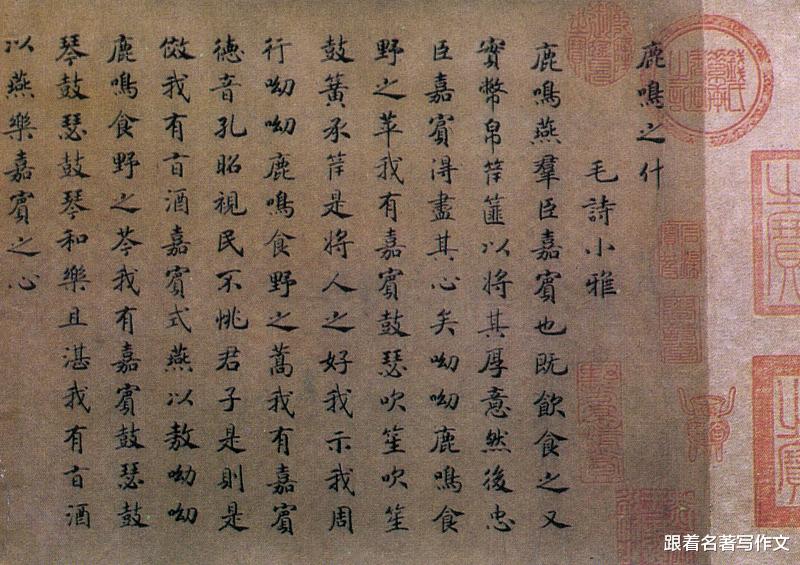 鹿鳴之什
毛詩小雅
鹿鳴燕羣臣嘉賓也既飲食之又
實幣帛筐篚以將其厚意然後忠
臣嘉賓得盡其心矣呦呦鹿鳴食
野之苹我有嘉賓鼓瑟吹笙吹笙
鼓簧承筐是將人之好我示我周
行呦呦鹿鳴食野之蒿我有嘉賓
德音孔昭視民不恌君子是則是
傚我有旨酒嘉賓式燕以敖呦呦
鹿鳴食野之芩我有嘉賓鼓瑟鼓
琴鼓瑟鼓琴和樂且湛我有旨酒
以燕樂嘉賓之心
之寶
之寶
跟着名著写作文